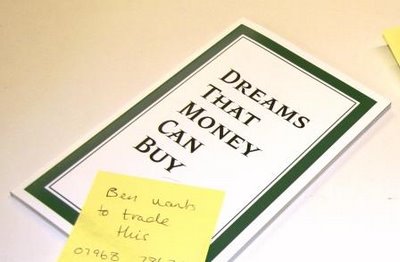 DREAMS
THAT
MONEY
CAN
BUY
Ben wants
to trade
this
07968